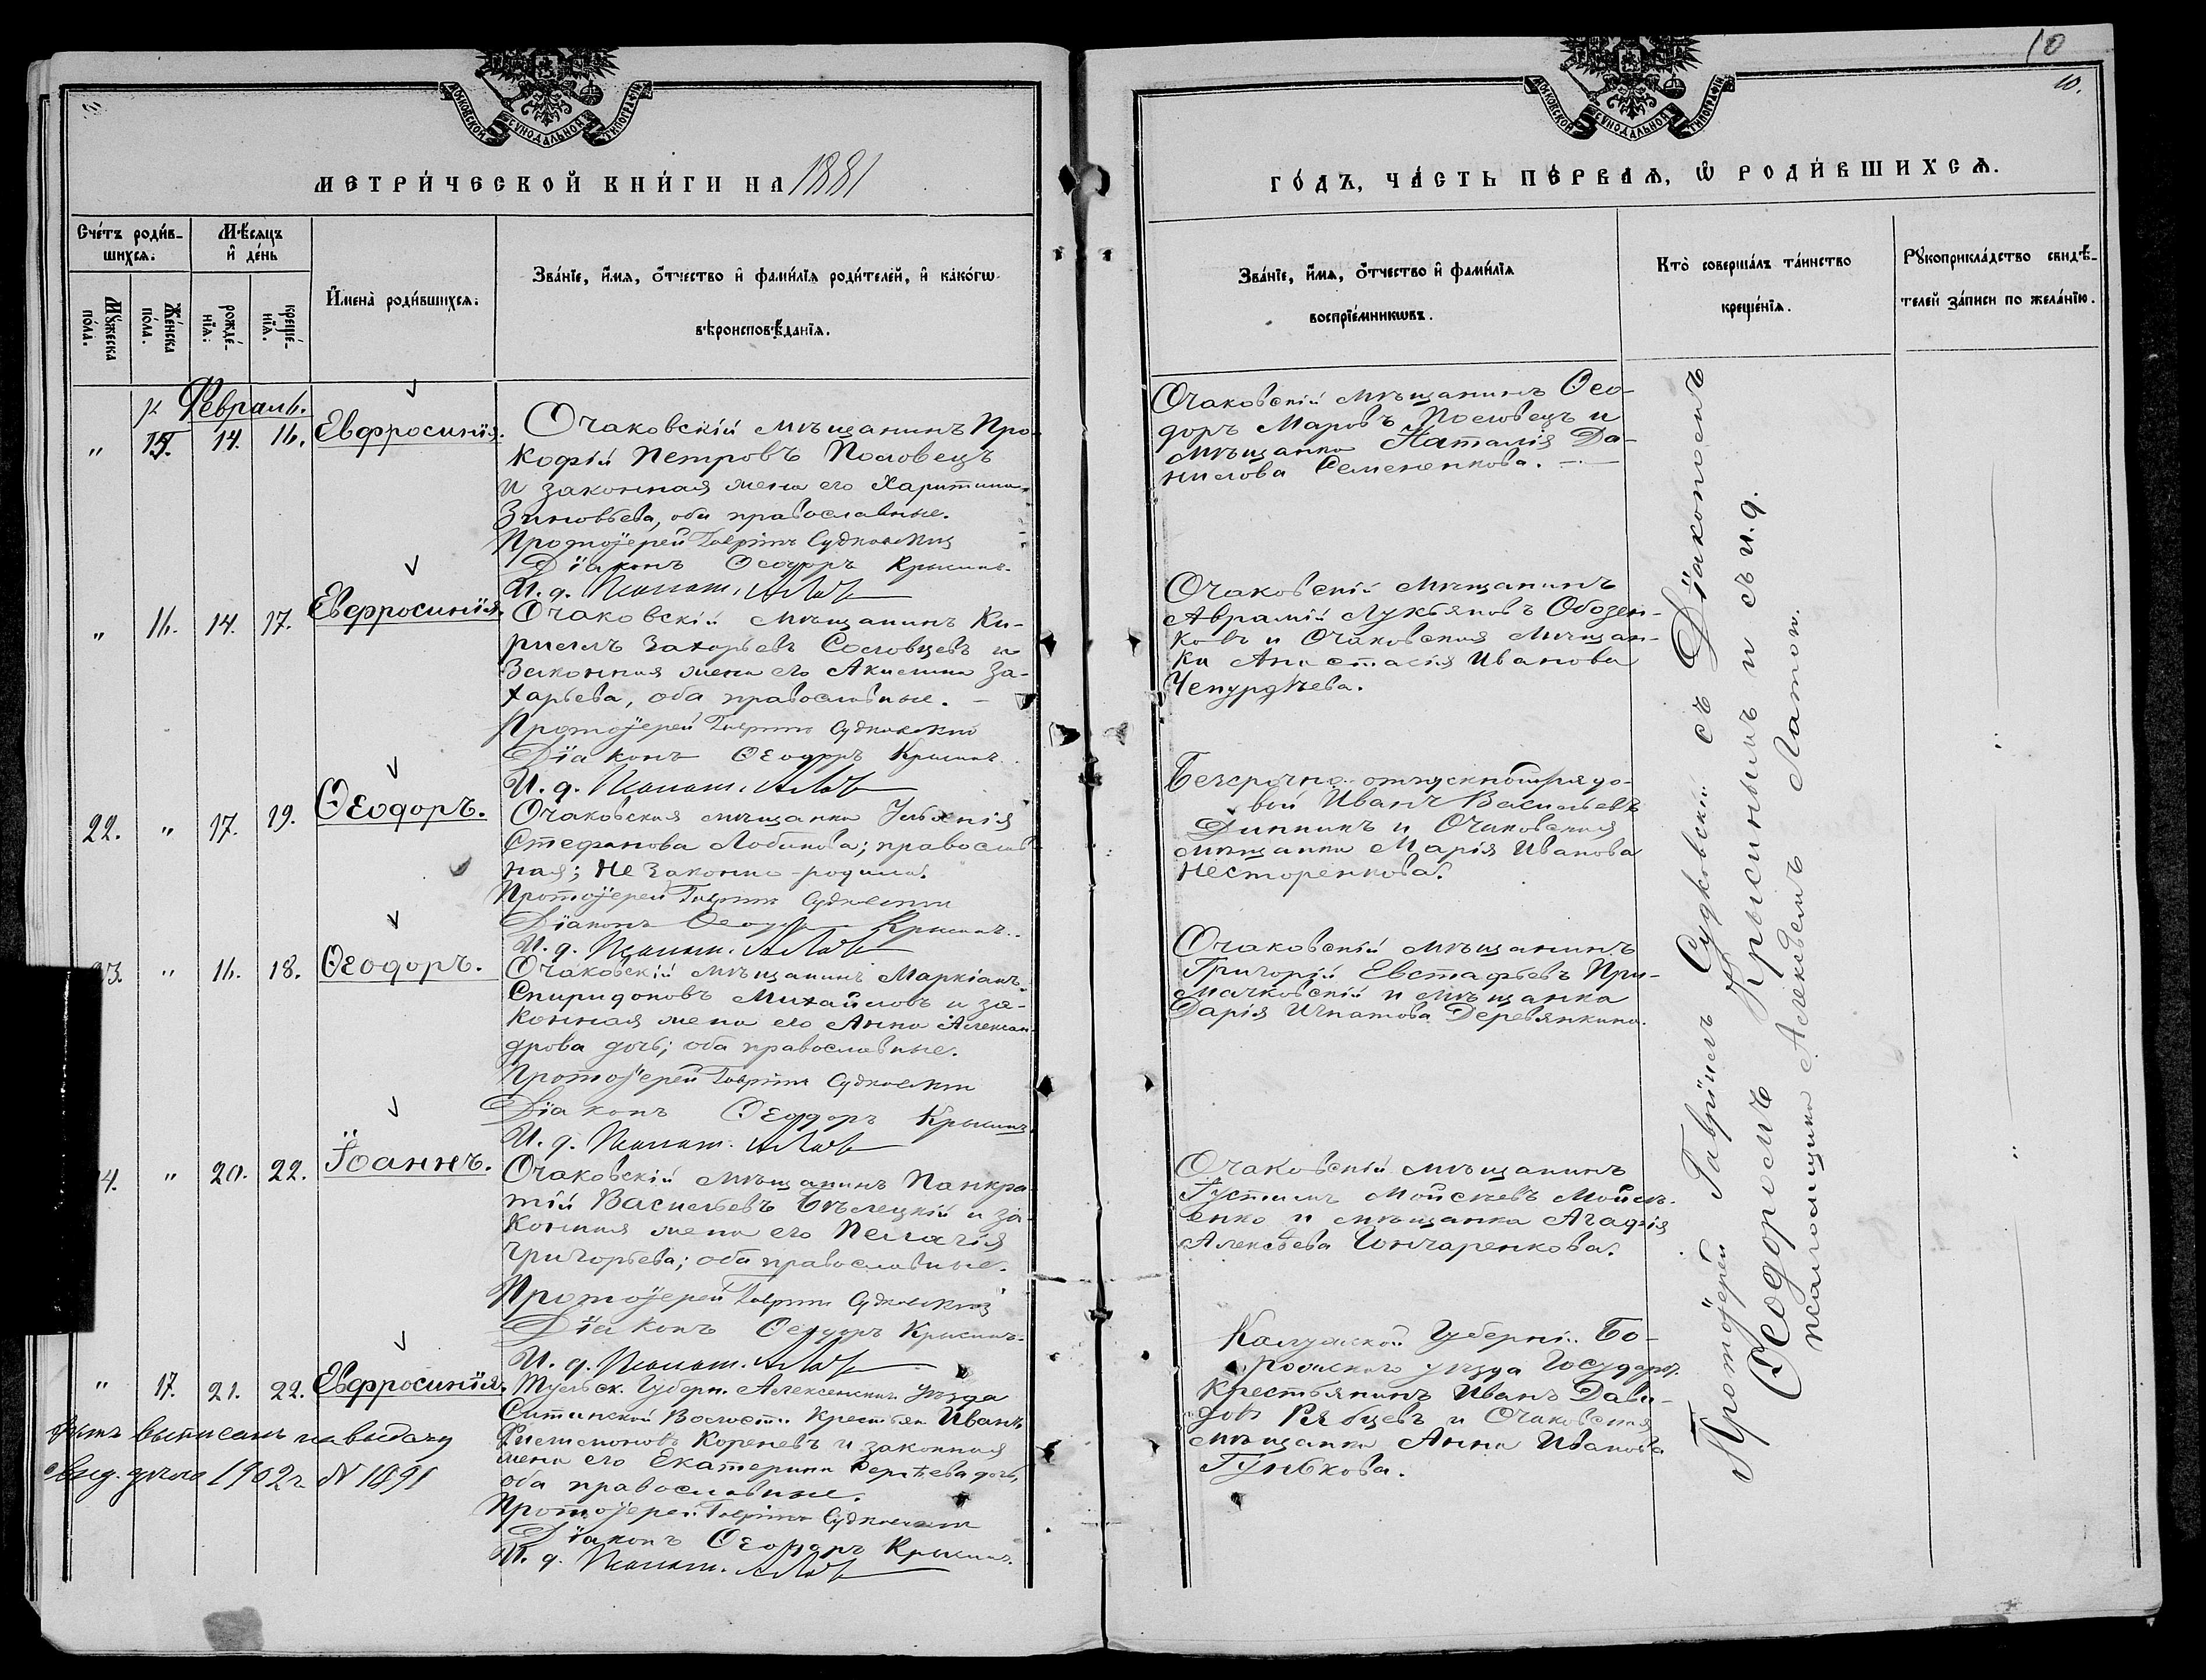 10
10.
МОСКОВСКОЙ СѴНОДАЛЬНОЙ ТИПОГРАФІИ
МЕТРИ́ЧЕСКОЙ КНИ́ГИ НА 1881
Сче́тъ роди́в-
шихся:
Мѣ́сяцъ
и҆ де́нь
Мꙋ́жеска по́ла.
Же́нска по́ла.
рожде́-
нїя:
креще́-
нїя.
И҆мена̀ роди́вшихся:
Зва́нїе, и҆́мя, ѻ҆́тчество и҆ фами́лїя роди́телей, и҆ како́гѡ
вѣроисповѣ́данїя.
Февраль.
" 15. 14. 16. Евфросинія.
Очаковскій мѣщанинъ Про-
кофій Петровъ Половецъ
и законная жена его Харитина
Зиновьева, оба православные.
Протоіерей Гавріилъ Судковскій
Діаконъ Ѳеодоръ Крысинъ.
И. д. Псалом.
" 16. 14. 17. Евфросинія.
Очаковскій мѣщанинъ Ки-
риллъ Захарьевъ Сословцевъ и
Законная жена его Акилина За-
харьева, оба православные. -
Протоіерей Гавріилъ Судковскій
Діаконъ Ѳеодоръ Крысинъ.
И. д. Псалом.
22. " 17. 19. Ѳеодоръ.
Очаковская мѣщанка
Стефанова Лобанова; православ-
ная; Незаконно-родила.
Протоіерей Гавріилъ Судковскій
Діаконъ Ѳеодоръ Крысинъ.
И. д. Псалом.
23. " 16. 18. Ѳеодоръ.
Очаковскій мѣщанинъ Маркіанъ
Спиридоновъ Михайловъ и за-
конная жена его Анна Алексан-
дрова дочь; оба православные.
Протоіерей Гавріилъ Судковскій
Діаконъ Ѳеодоръ Крысинъ
И. д. Псалом.
4. " 20. 22. Іоаннъ.
Очаковскій мѣщанинъ Панкра-
тій Васильевъ Бѣлецкій и за-
конная жена его Пелагія
Григорьева; оба православные.
Протоіерей Гавріилъ Судковскій
Діаконъ Ѳеодоръ Крысинъ.
И. д. Псалом.
" 17. 21. 22. Евфросинія.
Тульск. Губерн. Алексинскаго уѣзда
Волости Крестьян Иванъ
Кореневъ и законная
жена его Екатерина Сергѣева дочь,
оба православные.
Протоіерей Гавріилъ Судковскій
Діаконъ Ѳеодоръ Крысинъ.
И. д. Псалом.
выписанъ на выдачу
дѣло 1902 г № 1891
ГО́ДЪ, ЧА́СТЬ ПЕ́РВАЯ, Ѽ РОДИ́ВШИХСЯ.
МОСКОВСКОЙ СѴНОДАЛЬНОЙ ТИПОГРАФІИ
Зва́нїе, и҆́мя, ѻ҆́тчество и҆ фами́лїя
воспрїе́мникѡвъ.
Кто̀ соверша́лъ та́инство
креще́нїя.
Рꙋкоприкла́дство свидѣ́-
телей за́писи по жела́нїю.
Очаковскій мѣщанинъ Ѳео-
доръ Маровъ Половецъ и
мѣщанка Наталія Да-
нилова Семененкова.
Очаковскій мѣщанинъ
Аврамій Лукьяновъ Обозен-
ковъ и Очаковская мѣщан-
ка Анастасія Иванова
Чепурдѣева.
Безсрочно-отпускной рядо-
вой Иванъ Васильевъ
и Очаковская
мѣщанка Марія Иванова
Несторенкова.
Очаковскій мѣщанинъ
Григорій Евстафьевъ При-
мачковскій и мѣщанка
Дарія Игнатова Деревянкина.
Очаковскій мѣщанинъ
Густинъ Мойсѣевъ Мойсѣ-
енко и мѣщанка Агафія
Алексѣева Гончаренкова.
Калужской Губерніи Бо-
ровскаго уѣзда Государ.
Крестьянинъ Иванъ Давы-
довъ Рябцевъ и Очаковская
мѣщанка Анна Иванова
Гунькова.
Протоіерей Гавріилъ Судковскій съ Діакономъ
Ѳеодоромъ Крысинымъ и съ и. д.
псаломщика Алексѣемъ Латот.